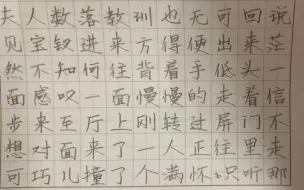 夫人数落教训也无可回说
见宝钗进来方得便出来茫
然不知何往背着手低头一
面感叹一面慢慢的走着信
步来至厅上刚转过屏门不
想对面来了一人正往里走
可巧儿撞了个满怀只听那